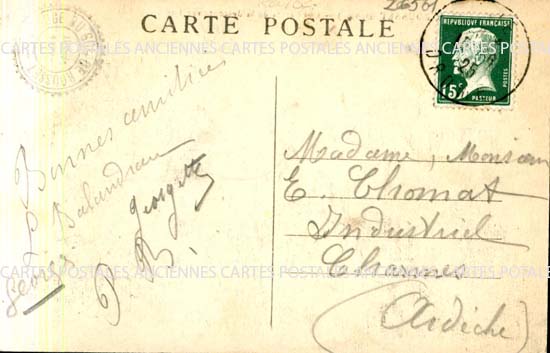 CARTE POSTALE
REPUBLIQUE FRANÇAISE
15c
POSTES
PASTEUR
CARTES POSTALES ANCIENNES CARTES POSTALES ANCIENNES CARTES POSTALES
Bonnes amitiés
Balandraud
Georgette
P. B.
Georges
Madame, Monsieur
E. Chomat
Industriel
(Ardèche)
ANCIENNES CARTES POSTALES ANCIENNES CARTES POSTALES